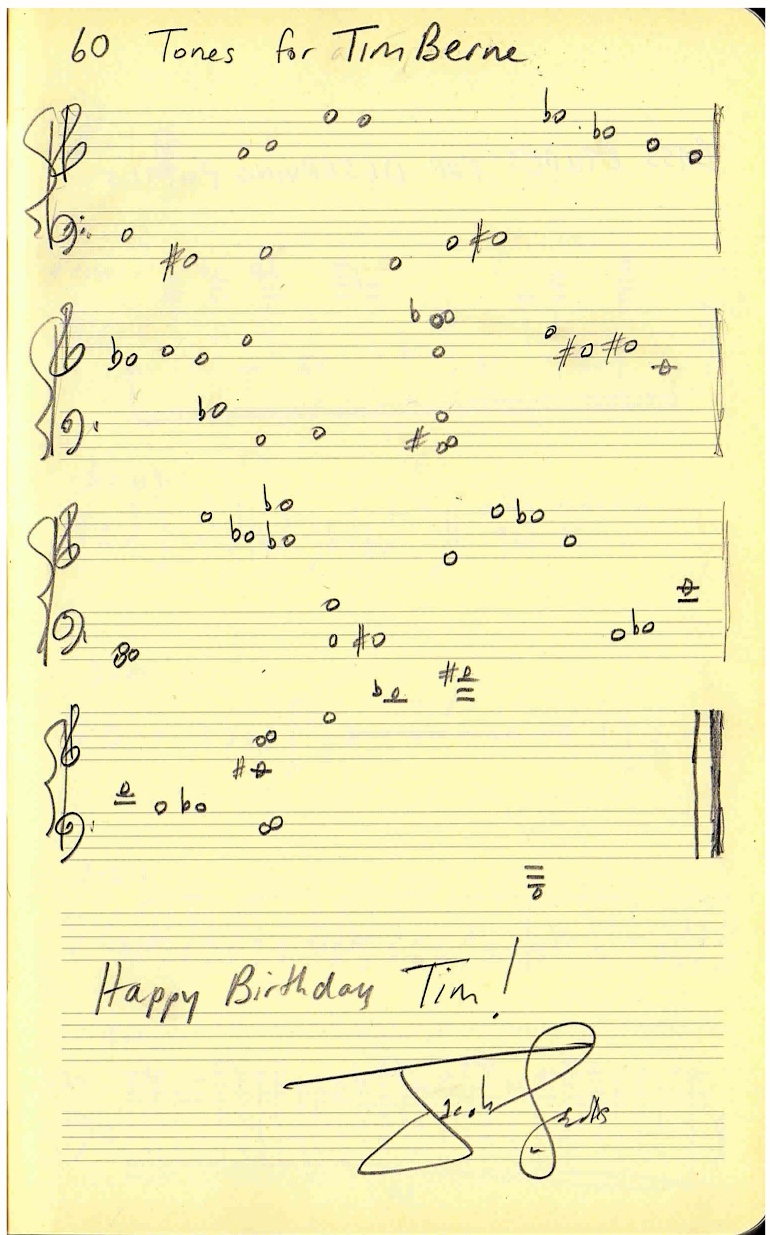 60 Tones for Tim Berne
Happy Birthday Tim!
Jacob Sacks